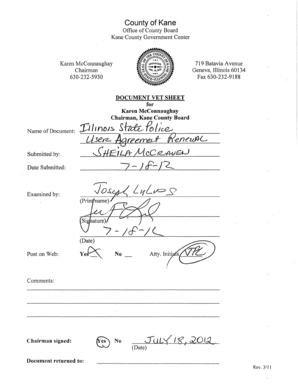 County of Kane
Office of County Board
Kane County Government Center
Karen McConnaughay
Chairman
630-232-5930
719 Batavia Avenue
Geneva, Illinois 60134
Fax 630-232-9188
DOCUMENT VET SHEET
for
Karen McConnaughay
Chairman, Kane County Board
Name of Document: Illinois State Police
Users Agreement Renewal
Submitted by: SHEILA McCRAVEN
Date Submitted: 7-18-12
Examined by: Joseph
(Print name)
(Signature)
7-18-12
(Date)
Post on Web: Yes No Atty. Initials
Comments:
Chairman signed: Yes No JULY 18, 2012
(Date)
Document returned to:
Rev. 3/11